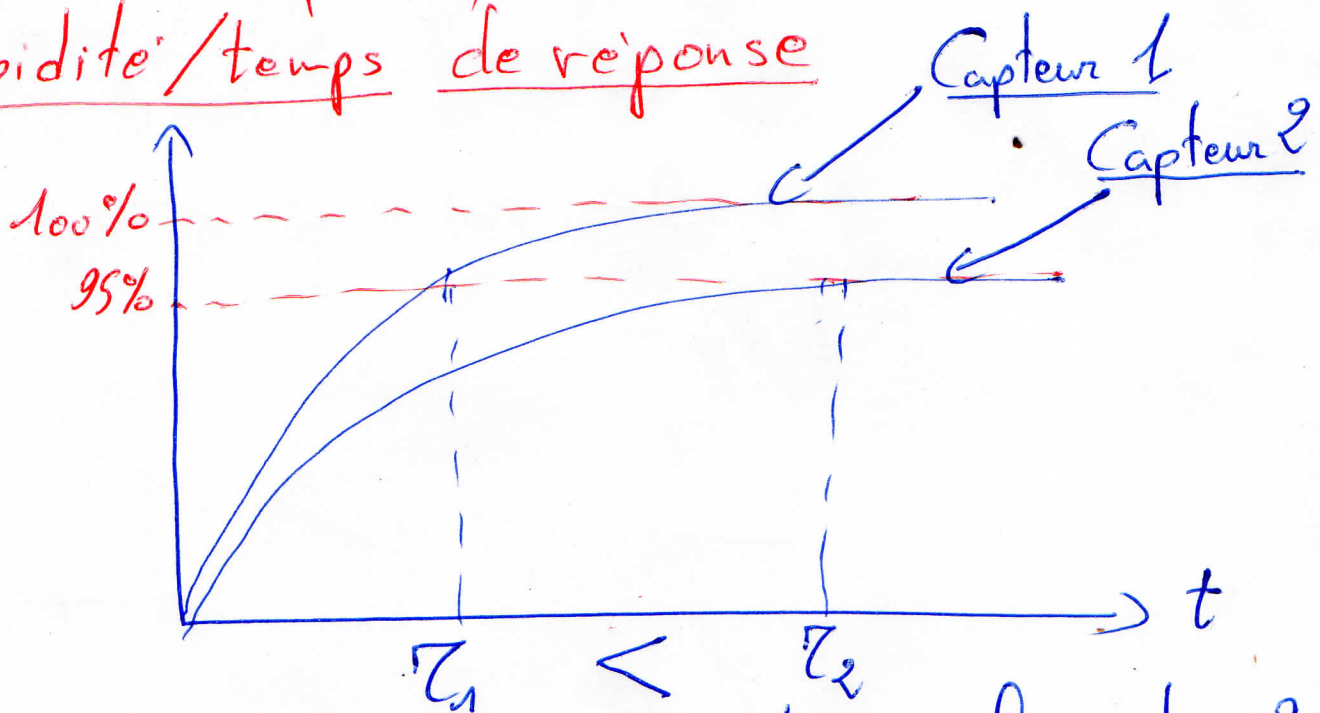 pidité/temps de réponse
Capteur 1
Capteur 2
100%
95%
t
τ1 < τ2